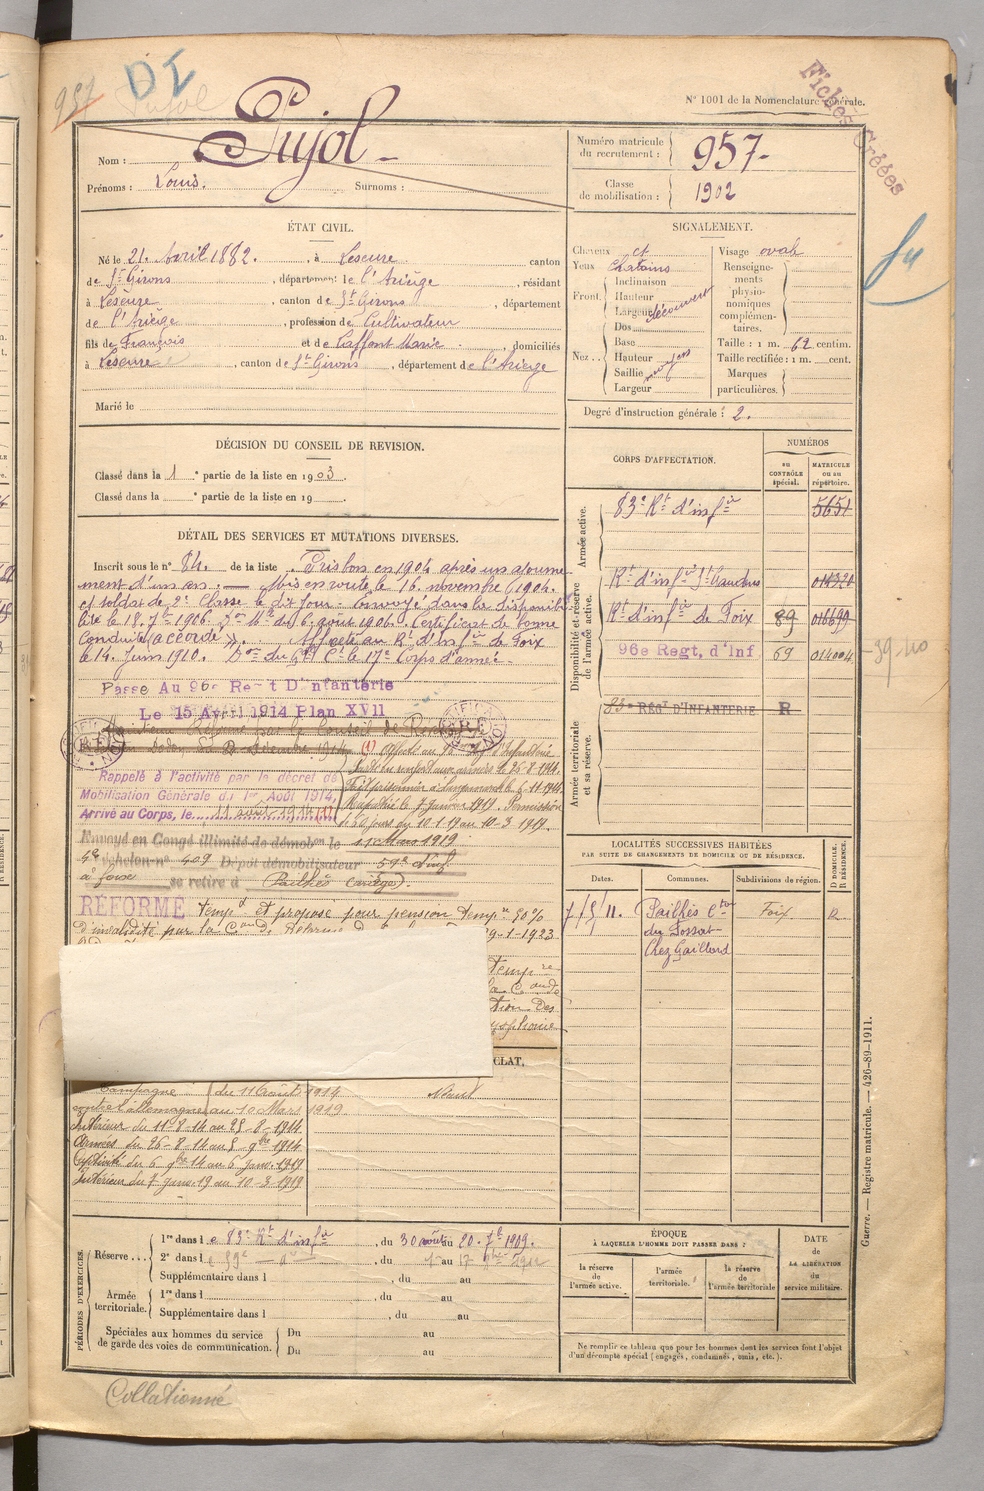 957
DI
Pujol
Fiches Créées
N° 1001 de la Nomenclature générale.
Nom : Pujol
Prénoms : Louis. Surnoms :
Numéro matricule du recrutement : 957
Classe de mobilisation : 1902
ÉTAT CIVIL.
Né le 21 Avril 1882. , à Lescure canton
de St Girons , département de l'Ariège , résidant
à Lescure , canton de St Girons , département
de l'Ariège , profession de Cultivateur
fils de François et de Laffont Marie , domiciliés
à Lescure , canton de St Girons , département de l'Ariège
Marié le
SIGNALEMENT.
Cheveux ct
Yeux chatains
Front. Inclinaison
Hauteur
Largeur découvert
Dos
Nez.. Base
Hauteur
Saillie moyens
Largeur
Visage ovale
Renseignements physionomiques complémentaires.
Taille : 1 m. 62 centim.
Taille rectifiée : 1 m. cent.
Marques particulières.
Degré d'instruction générale : 2.
DÉCISION DU CONSEIL DE REVISION.
Classé dans la 1 e partie de la liste en 1903.
Classé dans la e partie de la liste en 19
DÉTAIL DES SERVICES ET MUTATIONS DIVERSES.
Inscrit sous le n° 84. de la liste Pris bon en 1904 après un ajourne
ment d'un an. — Mis en route le 16 novembre 1904.
et soldat de 2e Classe le dit jour. Envoyé dans la disponibi
lité le 18. 7bre 1906. du 16 août 1906. Certificat de bonne
Conduite "accordé". Affecté au Rt d'infie de Foix
le 14 Juin 1910. Don du Gal Ct le 17e Corps d'armée.
Passé Au 96e Regt D'Infanterie
Le 15 Avril 1914 Plan XVII
Conseil de
décembre 1914
Rappelé à l'activité par le décret de
Mobilisation Générale du 1er Août 1914,
Arrivé au Corps, le 11 août 1914 (1)
(1) Affecté au d'Infanterie
Parti en renfort aux armées le 26-8-1914.
Fait prisonnier à le 6-11-1914
Rapatrié le 7 janvier 1919. Permission
de 60 jours du 10-1-19 au 10-3 1919.
Envoyé en Congé illimité de démobon le 11 Mars 1919
4e échelon n° 409 Dépôt démobilisateur 59e d'inf
à foix se retire à Pailhès (ariège).
RÉFORMÉ temp. et proposé pour pension tempre 50%
d'invalidité par la Con de Réforme 29-1-1923
tempre
la Con de
tion Des
CLAT.
Campagne du 11 Août 1914
contre l'allemagne au 10 Mars 1919
Intérieur du 11-8-14 au 25-8-1914
Armées du 26-8-14 au 5 9bre 1914
Captivité du 6 9bre 14 au 6 janv. 1919
Intérieur du 7 janv. 19 au 10-3-1919
Néant
CORPS D'AFFECTATION.
NUMÉROS
au CONTRÔLE spécial.
MATRICULE ou au répertoire.
Armée active.
83e Rt d'infie 5651
Disponibilité et réserve de l'armée active.
Rt d'infie St Gaudens 014321
Rt d'infie de Foix 89 016699
96e Regt. d'Inf 69 014004
39-40
Armée territoriale et sa réserve.
83e RÉGt D'INFANTERIE R
LOCALITÉS SUCCESSIVES HABITÉES
PAR SUITE DE CHANGEMENTS DE DOMICILE OU DE RÉSIDENCE.
Dates.
Communes.
Subdivisions de région.
D DOMICILE. R RÉSIDENCE.
7/5/11. Pailhès Cton Foix R
du Fossat
Chez Gaillard
PÉRIODES D'EXERCICES.
Réserve... 1re dans le 83e Rt d'infie , du 30 août au 20. 7bre 1909.
2e dans le 59e do , du 1er au 17
Supplémentaire dans l , du au
Armée territoriale. 1re dans l , du au
Supplémentaire dans l , du au
Spéciales aux hommes du service de garde des voies de communication. Du au
Du au
ÉPOQUE
À LAQUELLE L'HOMME DOIT PASSER DANS :
la réserve de l'armée active.
l'armée territoriale.
la réserve de l'armée territoriale
DATE de LA LIBÉRATION du service militaire.
Ne remplir ce tableau que pour les hommes dont les services font l'objet
d'un décompte spécial (engagés, condamnés, omis, etc.).
Guerre. — Registre matricule. — 426-89-1911.
Collationné